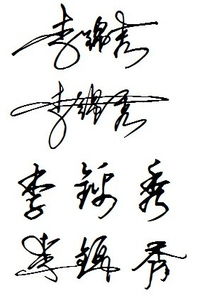 李锦秀
李锦秀
李 锦 秀
李 锦 秀